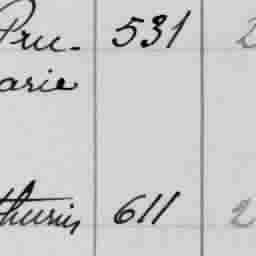 Pru- 531 2
arie
thurin 611 2